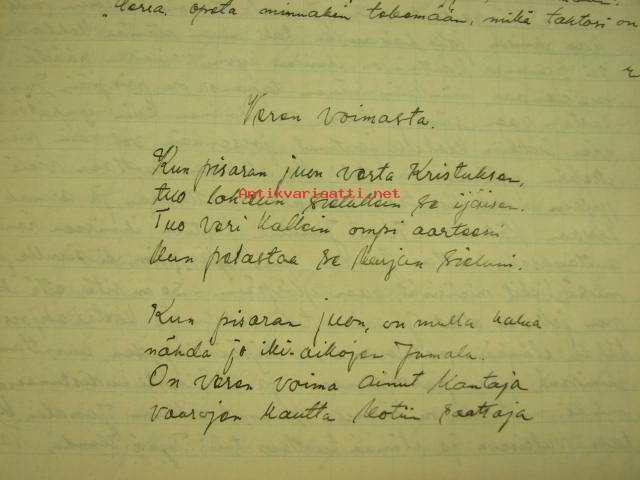 "Herra, opeta minuakin tekemään, mikä tahtosi on
Veren voimasta.
Kun pisaran juon verta Kristuksen,
tuo lohdun sielullein se ijäisen.
Antikvariaatti.net
Tuo veri kallein ompi aarteeni
kun pelastaa se kurjan sieluni.
Kun pisaran juon, on mulla halua
nähdä jo iki-aikojen Jumala.
On veren voima ainut kantaja
vaarojen kautta kotiin saattaja